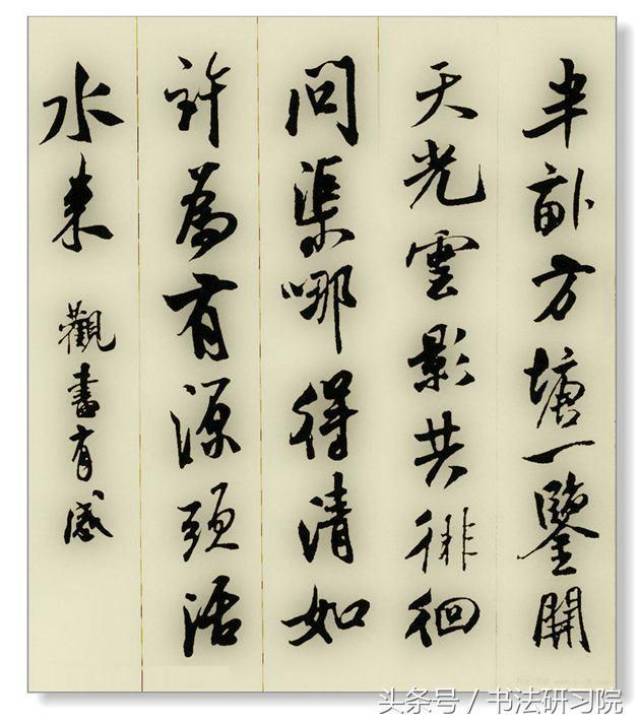 半畝方塘一鑒開
天光雲影共徘徊
問渠哪得清如
許為有源頭活
水来
觀書有感
头条号／书法研习院